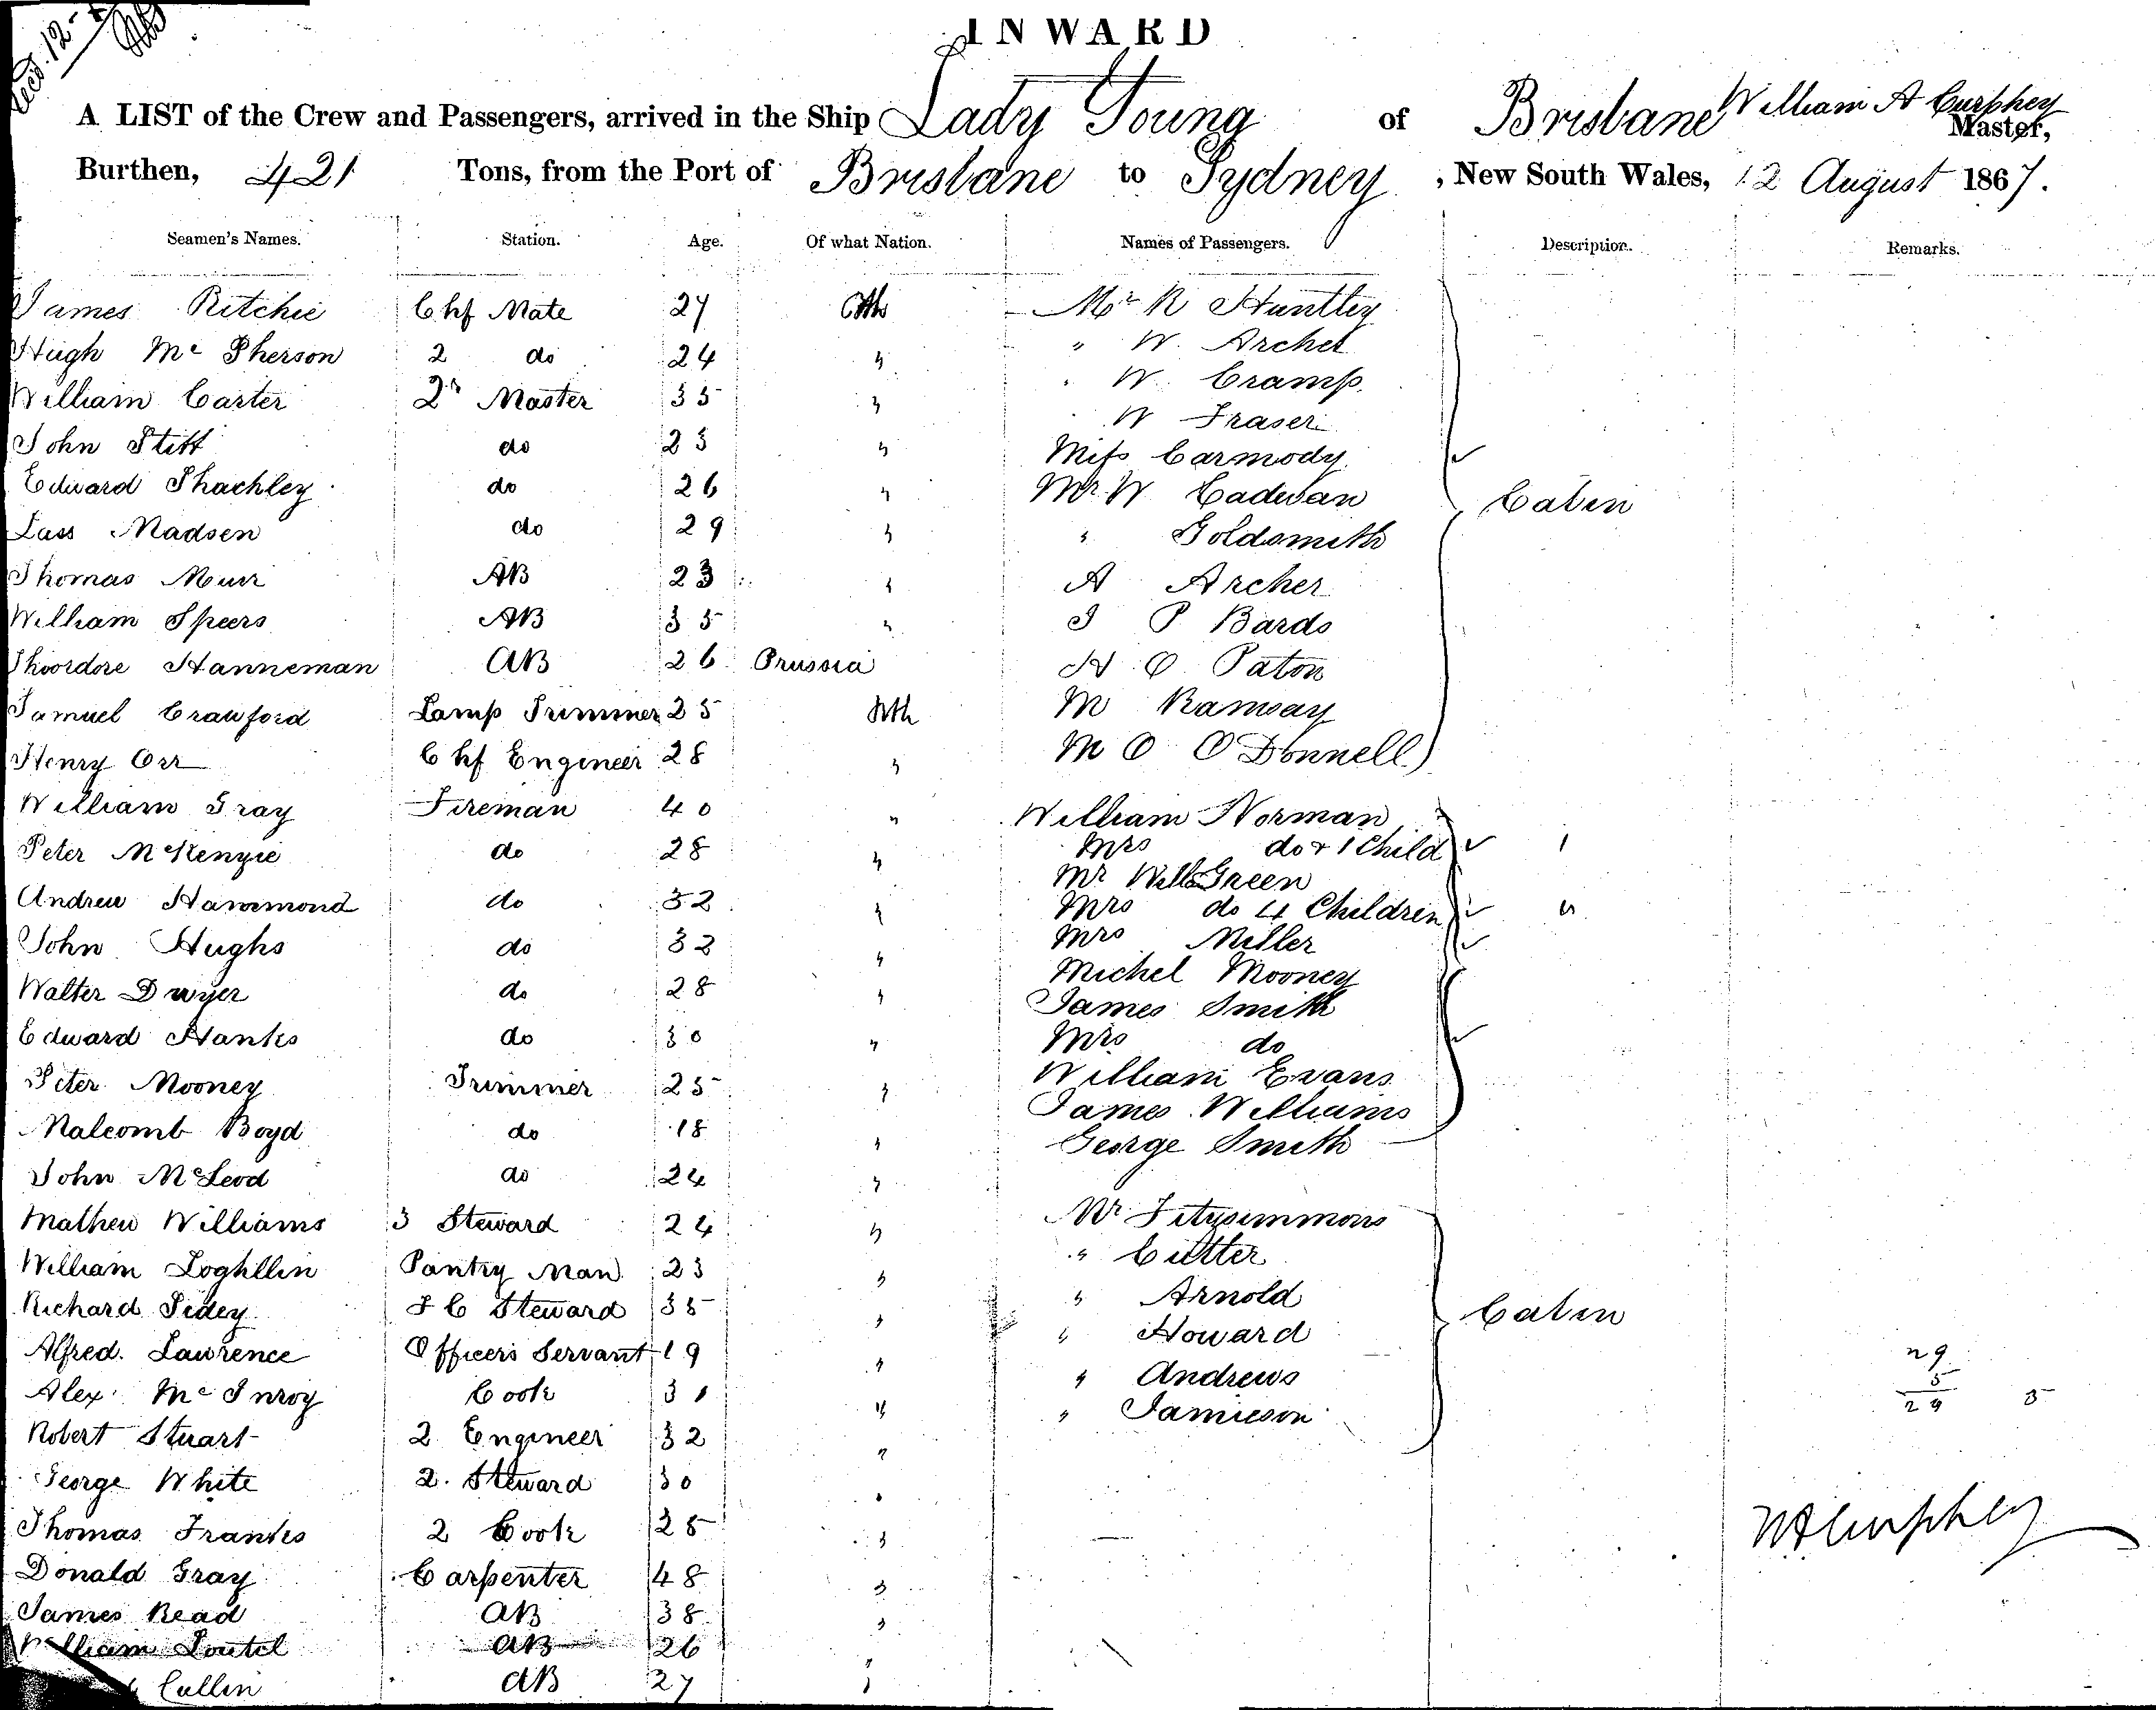 INWARD
A LIST of the Crew and Passengers, arrived in the Ship Lady Young of Brisbane William A Curphey Master,
Burthen, 421 Tons, from the Port of Brisbane to Sydney, New South Wales, 12 August 1867.
Seamen's Names. Station. Age. Of what Nation. Names of Passengers. Description. Remarks.
James Ritchie Chf Mate 27 Mr R Huntley
Hugh McPherson 2 do 24 " " W. Archer
William Carter 2r Master 35 " " W. Cramp
John Stitt do 23 " W Fraser
Edward Shachley do 26 " Miss Carmody
Lass Madsen do 29 " Mr W Cadwan Cabin
Thomas Muir AB 23 " " Goldsmith
William Speers AB 35 " A Archer
Thoordore Hanneman AB 26 Prussia J P Bards
Samuel Crawford Lamp Trimmer 25 H O Paton
Henry Orr Chf Engineer 28 " M Ramsay
William Gray Fireman 40 " M O O'Donnell
Peter McKenzie do 28 " William Norman
Mrs do & 1 Child 1
Andrew Hammond do 32 " Mr Willm Green
Mrs do 4 Children 4
John Hughs do 32 " Mrs Miller
Walter Dwyer do 28 " Michel Mooney
James Smith
Edward Hanks do 30 " Mrs do
Peter Mooney Trimmer 25 " William Evans
Malcomb Boyd do 18 " James Williams
George Smith
John McLeod do 24 "
Mathew Williams 3 Steward 24 " Mr Fitzsimmons
William Loghllin Pantry Man 23 " " Cutter
Richard Sidey F C Steward 35 " " Arnold Cabin
Alfred. Lawrence Officers Servant 19 " " Howard 29
Alex McInroy Cook 31 " " Andrews 5
Robert Stuart 2 Engineer 32 " " Jamieson 29 5
George White 2. Steward 30 "
Thomas Franks 2 Cook 25 " WACurphey
Donald Gray Carpenter 48 "
James Read AB 38 "
William Loutel AB 26 "
Cullin AB 27 "